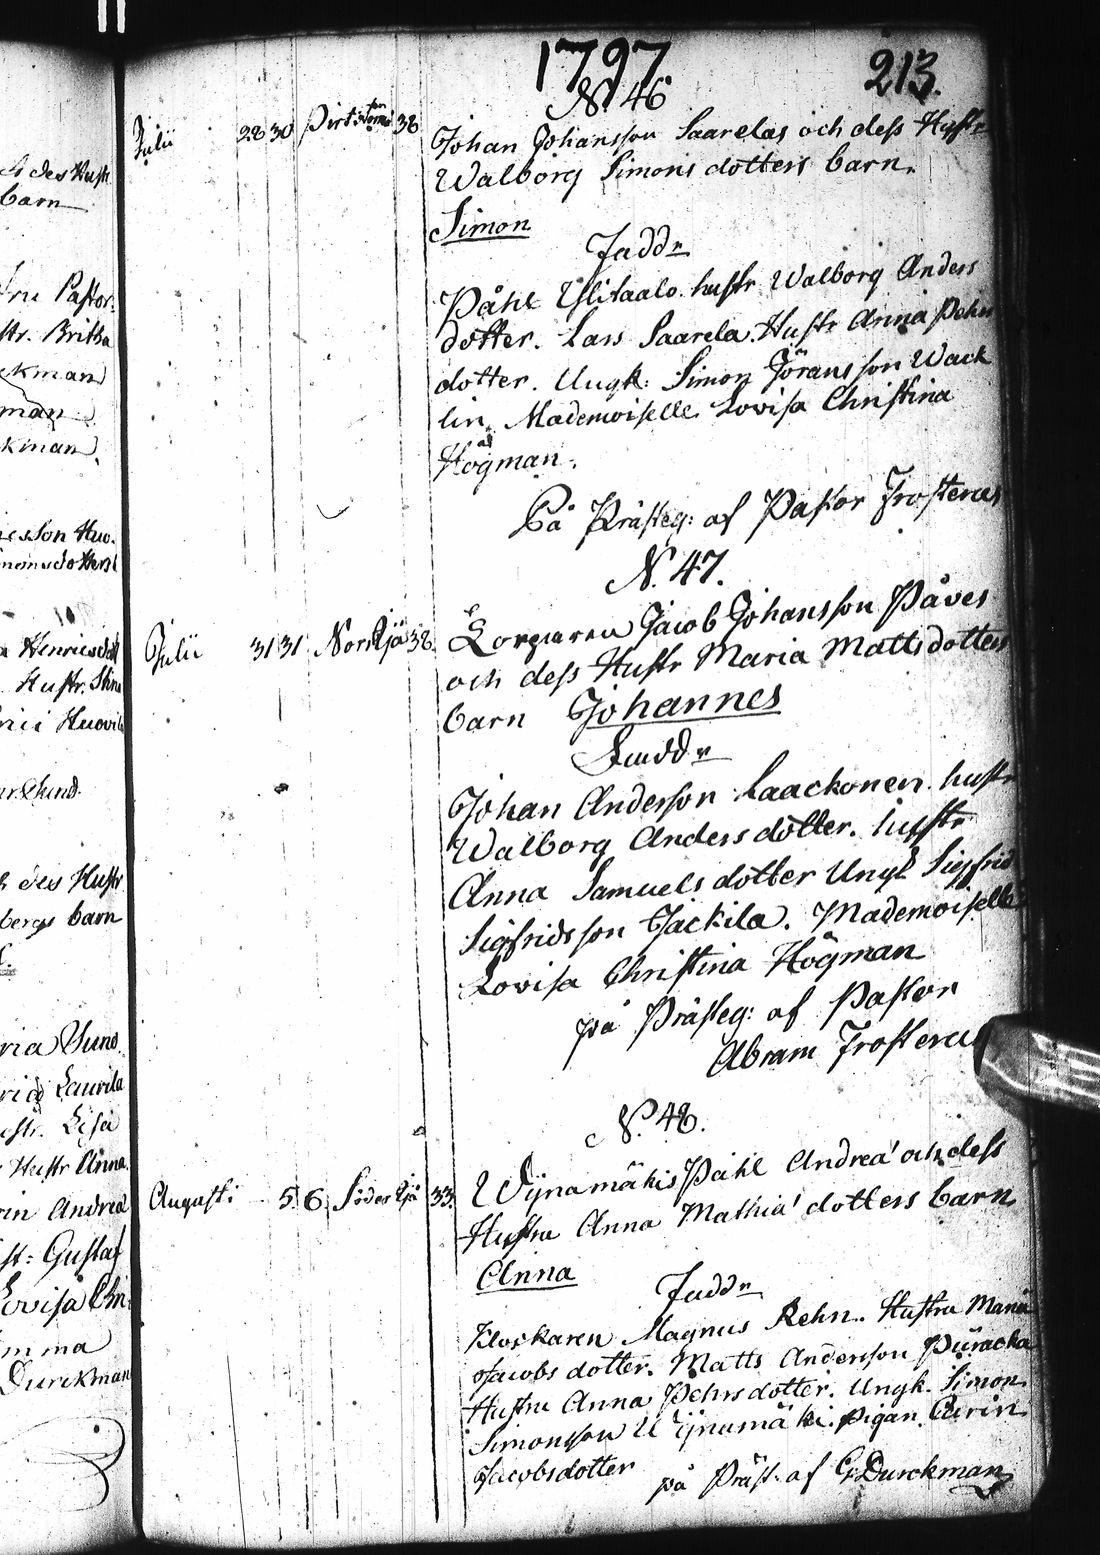 des Hustr
barn
Pastor
str. Britha
ckman
man
kman
Henricsdott
Hustr. Stina
Sund
des Hustr
bergs barn
ria Suno
Laurila
Hustr Anna
Andrea
st: Gustaf
Lovisa Chri
mma
Durckman
1797
213.
N. 46
Julii 28 30 38 Johan Johansson Saarelas och dess Hustr
Walborg Simons dotters barn.
Simon
Faddr
Påhl Ylitaalo. hustr Walborg Anders
dotter. Lars Saarela. Hustr Anna Pehrs
dotter. Ungk: Simon Göransson Wack
lin, Mademoiselle Lovisa Christina
Högman.
På Prästeg: af Pastor Frosterus
N. 47.
Julii 31 31 Norrsjö 38 Jacob Johansson Påves
och dess Hustr Maria Mattsdotters
barn Johannes
Faddr
Johan Andersson Laackonen. hustr
Walborg Andersdotter. hustr
Anna Samuelsdotter Ungk Sigfrid
Sigfridsson Jäckilä. Mademoiselle
Lovisa Christina Högman
på Prästeg: af Pastor
Abram Frosterus
N. 48.
Augusti 5 6 Södersjö 33 Wijnamäkis Påhl Andreæ och dess
Hustru Anna Mathiæ dotters barn
Anna
Faddr
Klockaren Magnus Rehn. Hustru Maria
Jacobs dotter. Matts Andersson
Hustru Anna Pehrsdotter. Ungk. Simon
Simonsson Wijnamäki. pigan Carin
Jacobsdotter på Präst. af G. Durckman